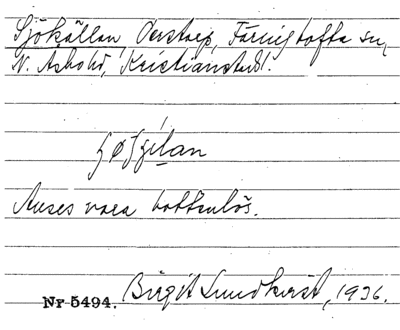 Sjökällan, Oerstorp, Färingtofta sn,
N. Åsbo hd, Kristianstads l.
Anses vara bottenlös.
Nr 5494. Birgit Lundkvist, 1936.